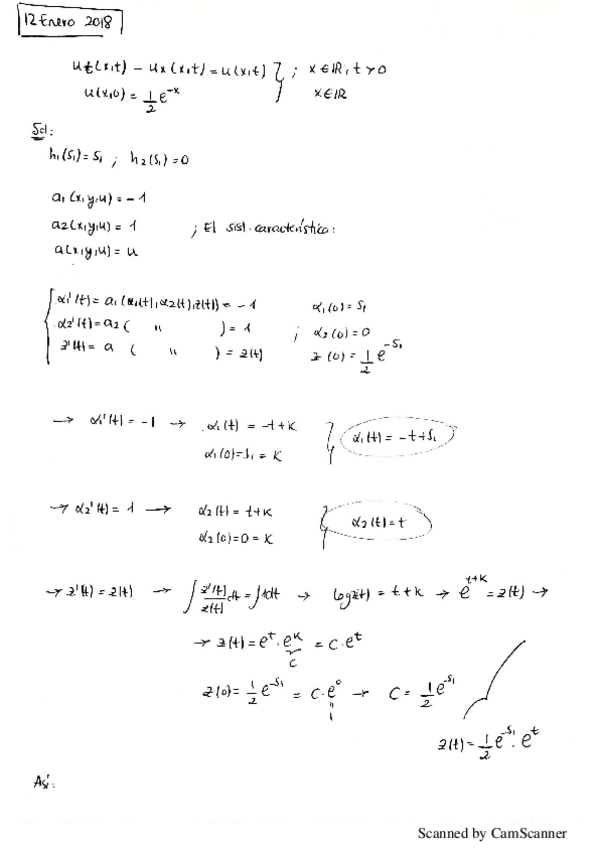 12 Enero 2018
ut(x,t) - ux(x,t) = u(x,t) } ; x∈IR, t>0
u(x,0) = 1/2 e^-x } x∈IR
Sol:
h1(s1)=s1 ; h2(s1)=0
a1(x,y,u) = -1
a2(x,y,u) = 1 ; El sist. característico:
a(x,y,u) = u
{ α1'(t) = a1(α1(t), α2(t), z(t)) = -1 α1(0) = s1
α2'(t) = a2( " ) = 1 ; α2(0) = 0
z'(t) = a ( " ) = z(t) z(0) = 1/2 e^-s1
→ α1'(t) = -1 → α1(t) = -t+k } α1(t) = -t+s1
α1(0)=s1 = k
→ α2'(t) = 1 → α2(t) = t+k } α2(t) = t
α2(0)=0 = k
→ z'(t) = z(t) → ∫ z'(t)/z(t) dt = ∫1dt → log z(t) = t+k → e^t+k = z(t) →
→ z(t) = e^t · e^k = c·e^t
c
z(0) = 1/2 e^-s1 = c·e^0 → c = 1/2 e^-s1
"
1
z(t) = 1/2 e^-s1 · e^t
Así:
Scanned by CamScanner